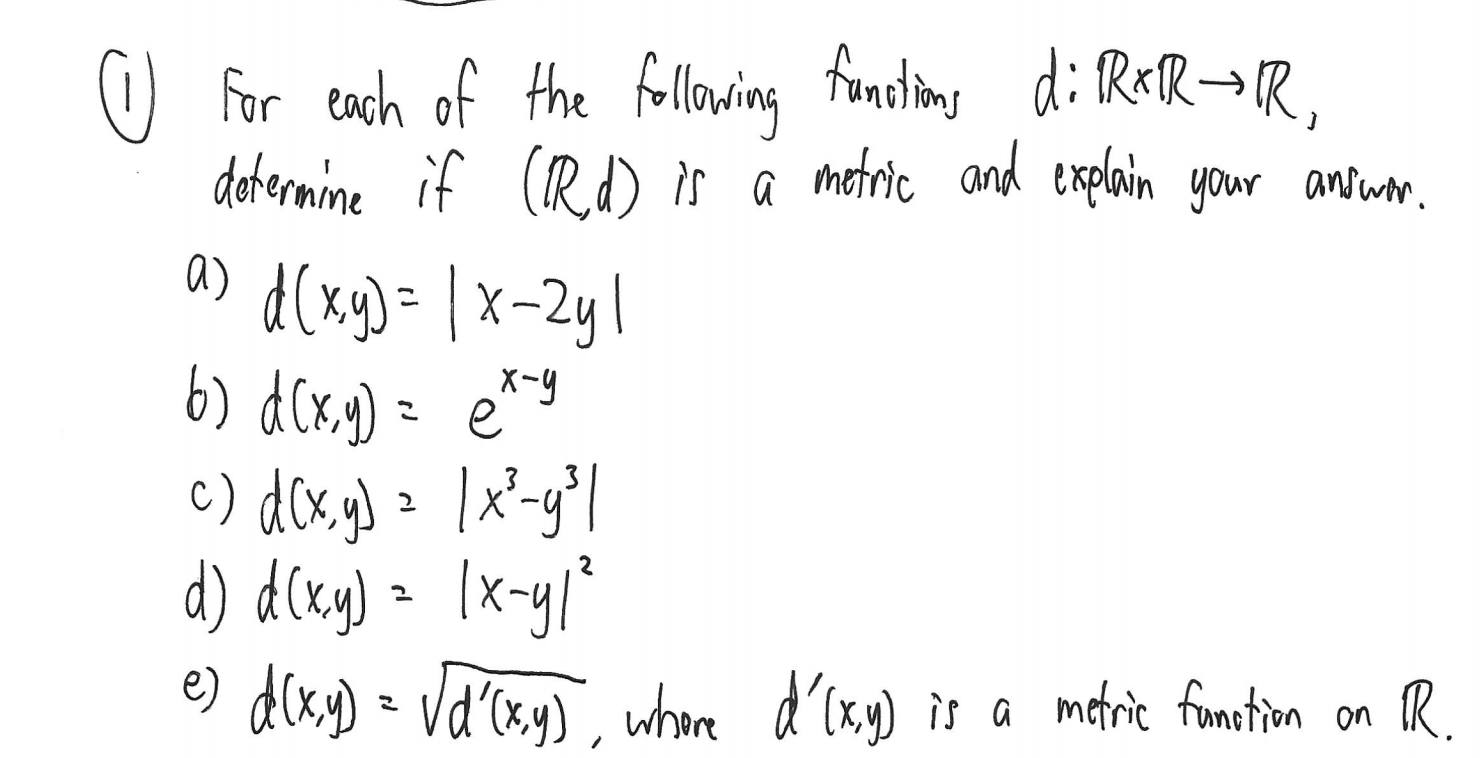 ① For each of the following functions d: ℝ×ℝ→ℝ,
determine if (ℝ,d) is a metric and explain your answer.
a) d(x,y) = |x-2y|
b) d(x,y) = e^{x-y}
c) d(x,y) = |x³-y³|
d) d(x,y) = |x-y|²
e) d(x,y) = √d'(x,y), where d'(x,y) is a metric function on ℝ.